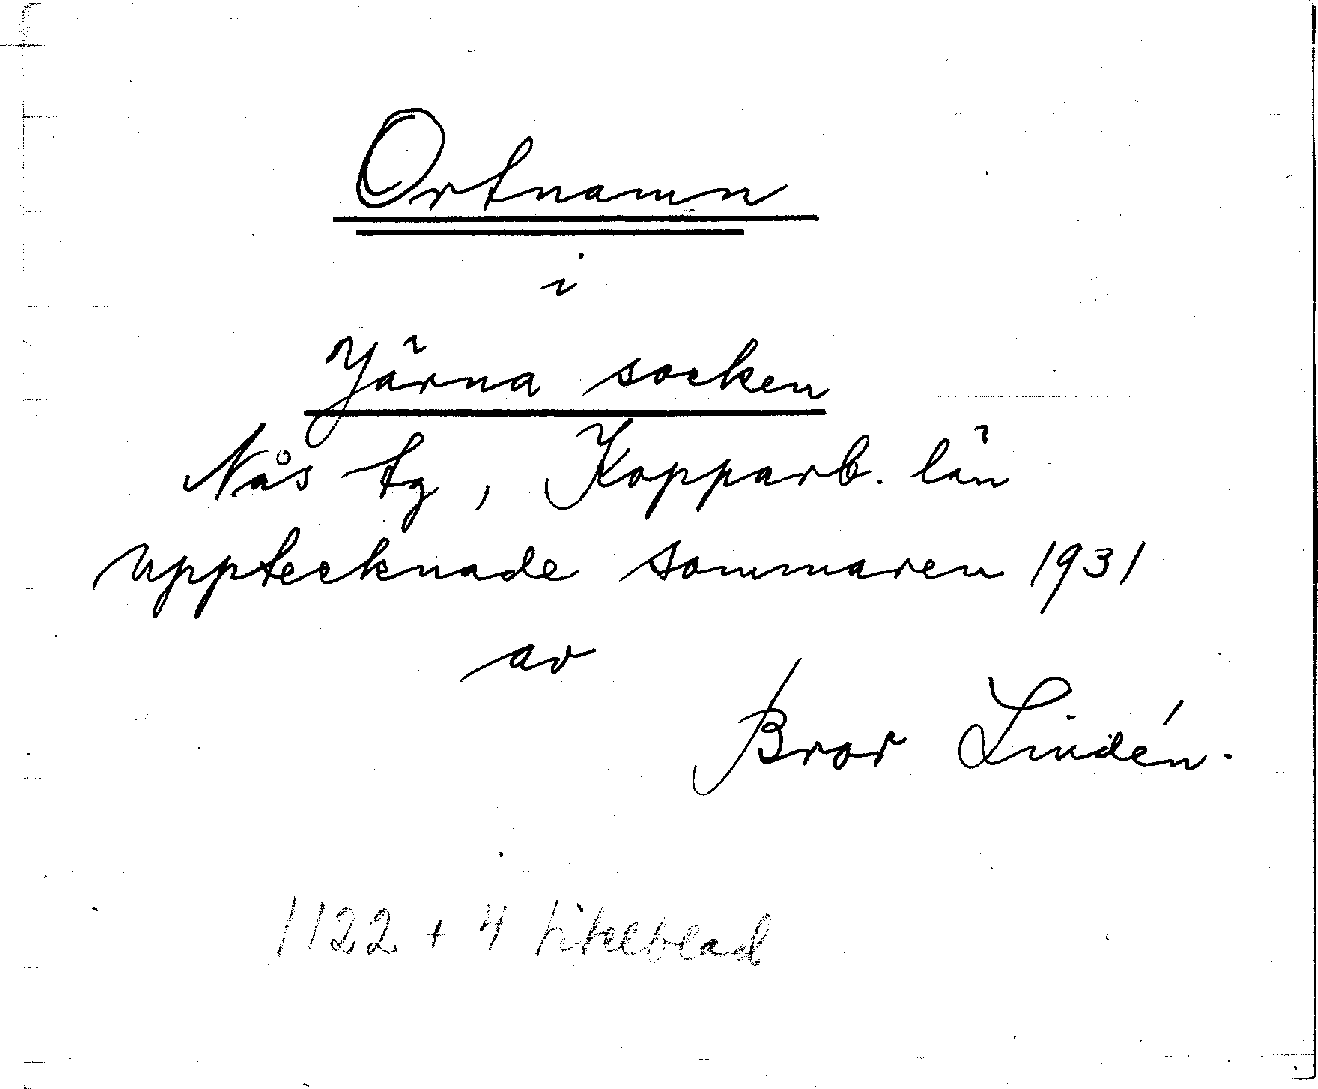 Ortnamn
i
Järna socken
Nås tg, Kopparb. län
upptecknade sommaren 1931
av
Bror Lindén.
1122 + 4 titelblad